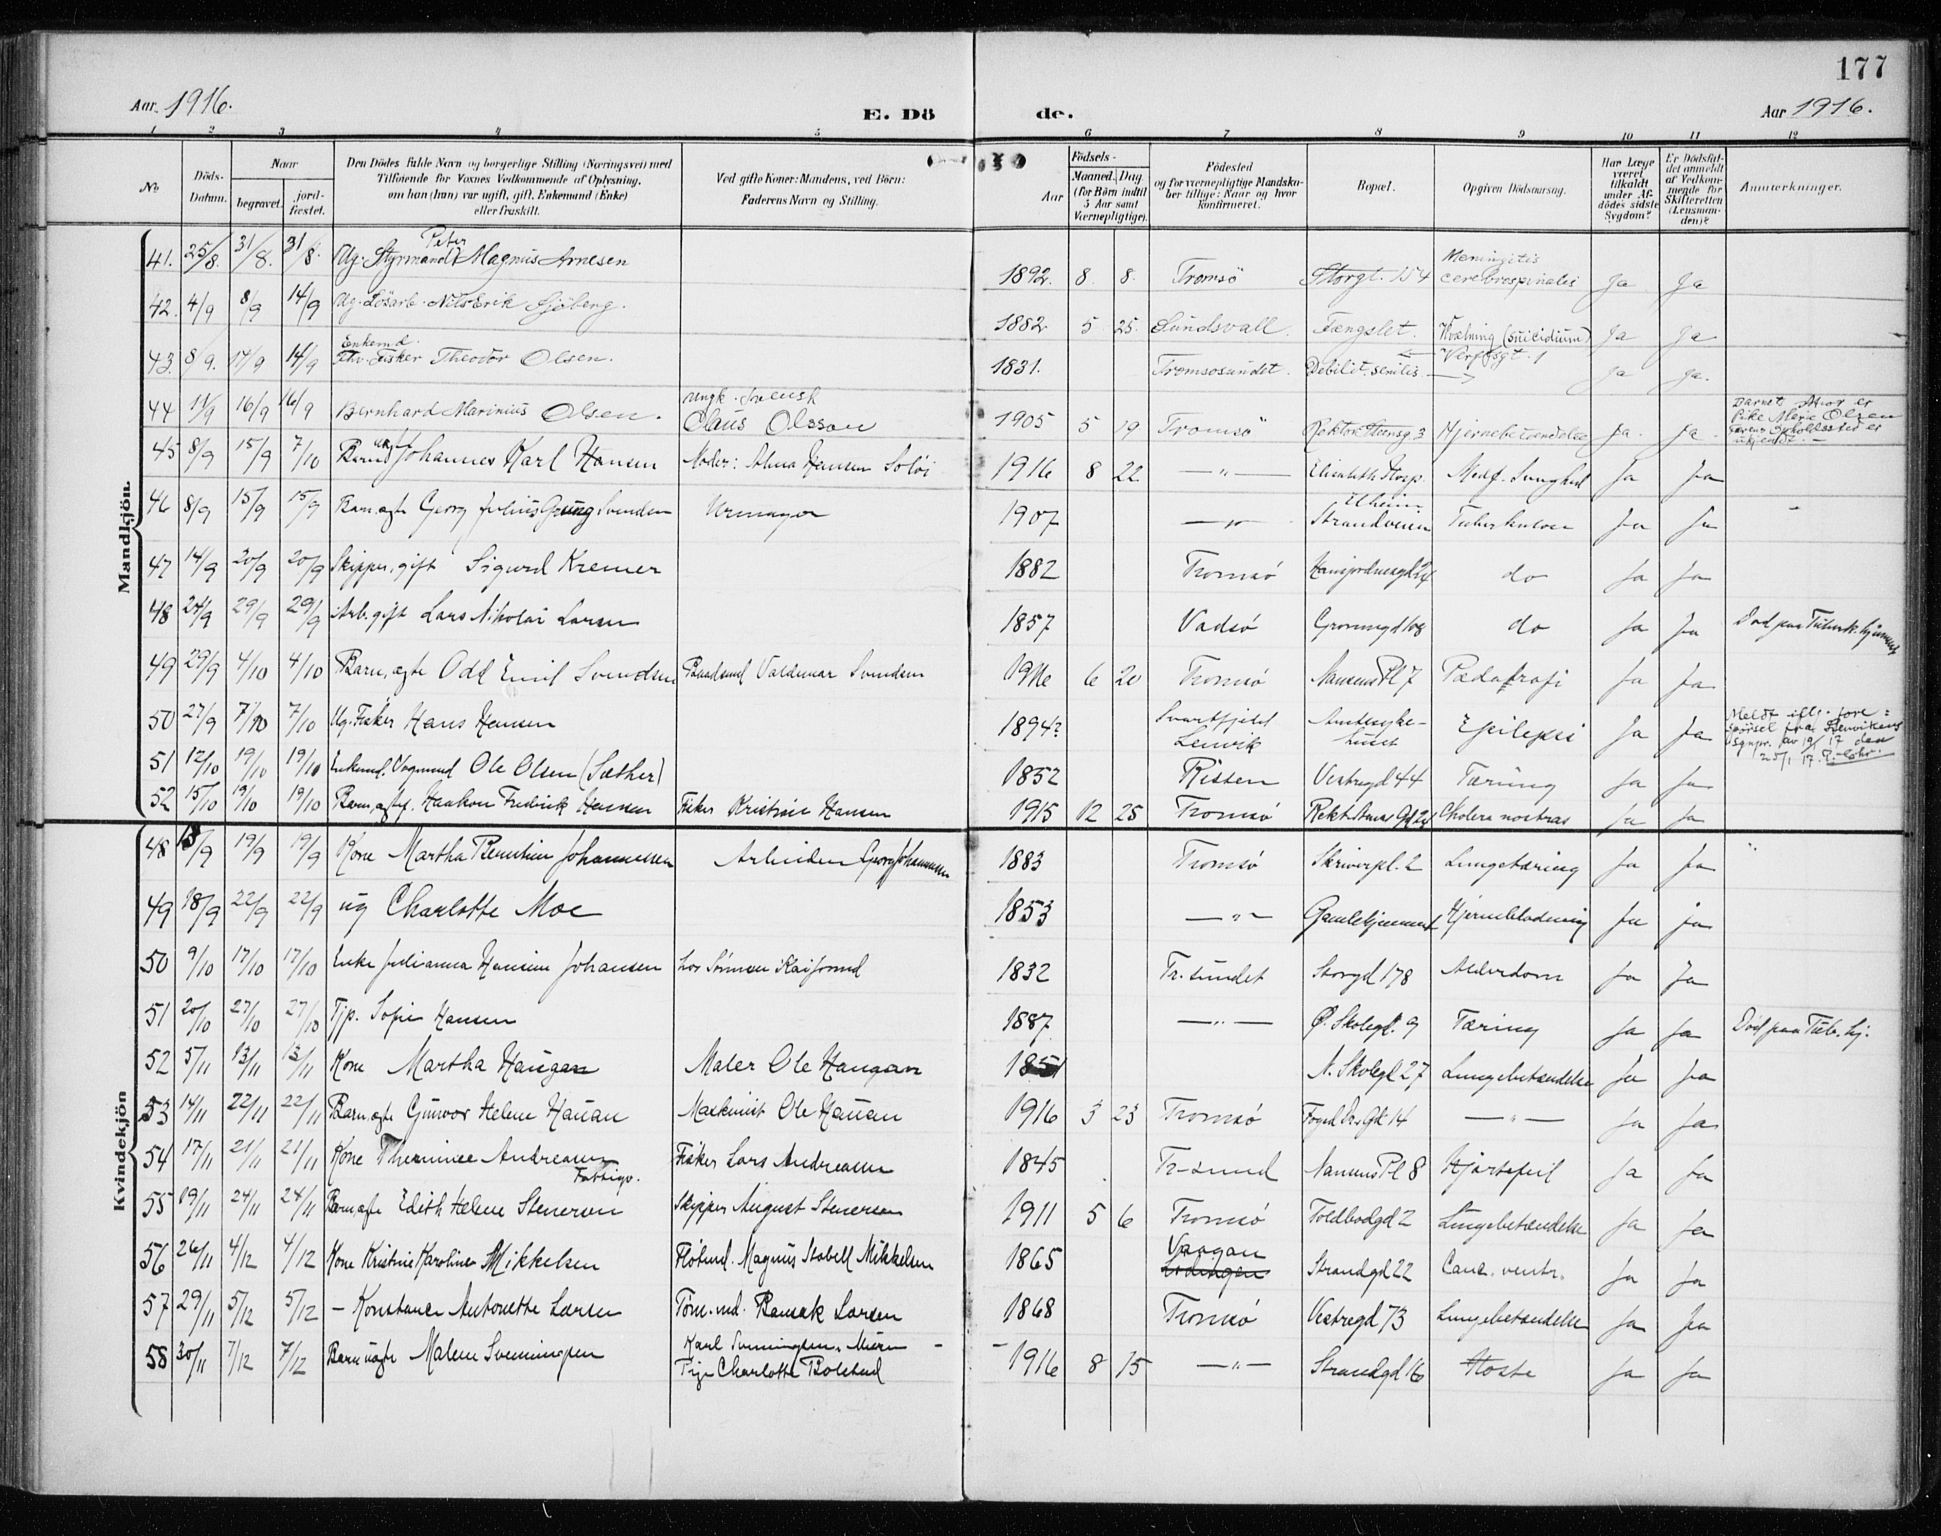 177
Aar 1916. E. Dö de. Aar 1916.
1 2 3 4 5 6 7 8 9 10 11 12
No
Döds-Datum.
Naar
begravet.
jord-fæstet.
Den Dödes fulde Navn og borgerlige Stilling (Næringsvei) med Tilföiende for Voxnes Vedkommende af Oplysning, om han (hun) var ugift, gift, Enkemand (Enke) eller fraskilt.
Ved gifte Koner: Mandens, ved Börn: Faderens Navn og Stilling.
Aar
Födsels-
Maaned. Dag. (for Börn indtil 5 Aar samt Værnepligtige).
Födested og for værnepligtige Mandskaber tillige: Naar og hvor konfirmeret.
Bopæl.
Opgiven Dödsaarsag.
Har Læge været tilkaldt under Afdödes sidste Sygdom?
Er Dödsfaldet anmeldt af Vedkommende for Skifteretten (Lensmanden)?
Anmerkninger.
Mandkjön.
41. 25/8. 31/8. 31/8. Ug. Styrmand Peter Magnus Arnesen 1892. 8. 8. Tromsö Storgt. 154 Meningitis cerebrospinalis Ja Ja
42. 4/9 8/9 14/9 Ug. Lösarb. Nils Erik Sjöberg. 1882 5 25. Sundsvall. Fængslet. Kvælning (suicidium) Ja Ja
43. 8/9. 14/9 14/9 Enkemd. Fisker Theodor Olsen. 1831. Tromsosundet. Debilit. senilis Verftsgt. 1 Ja Ja.
44 11/9 16/9 16/9 Bernhard Marinius Olsen. Ungk. svensk Claus Olsson 1905 5 19 Tromsö Rektor Steensg 3 Hjernebetændelse Ja. Ja. Barnets Mor er Pike Marie Olsen
45 8/9 15/9 7/10 Barn uægte Johannes Karl Hansen Moder: Alma Hansen 1916 8 22 —"— Medf. Svaghed Ja Ja
46 8/9 15/9 15/9 Barn, ægte Georg Julius Grung Svendsen Urmager 1907 —"— Elheim Strandveien Tuberkulose Ja Ja
47 14/9 20/9 20/9 Skipper, gift Sigurd Kremer 1882 Tromsö do Ja Ja
48 24/9 29/9 29/9 Arb. gift Lars Nikolai Larsen 1857 Vadsö Gronnegd 108 do Ja Ja Död paa Tuberk. hjemmet
49 29/9 4/10 4/10 Barn, ægte Odd Emil Svendsen Valdemar Svendsen 1916 6 20 Tromsö Nansens Pl 7 Pædatrofi Ja Ja
50 27/9 7/10 7/10 Ug. Fisker Hans Hansen 1894? Lenvik Amtssyke-huset Epilepsi Ja Ja Meldt ifl. fore-spörsel fra Lenvikens Sognpr. av 19/1 17 den 25/1 17.
51 12/10 19/10 19/10 Enkemd. Vognmand Ole Olsen (Sæther) 1852 Rissen Vestregd 44 Tæring Ja Ja
52 15/10 19/10 19/10 Barn, ægte. Haakon Fredrik Hansen Fisker Kristine Hansen 1915 12 25 Tromsö Cholera nostras Ja Ja
Kvindekjön
48 13/9 19/9 19/9 Kone Martha Johannessen Arbeider Georg Johannessen 1883 Tromsö Skriverpl. 2 Lungetæring Ja Ja
49 18/9 22/9 22/9 ug Charlotte Moe 1853 —"— Gamlehjemmet Hjerneblödning Ja Ja
50 9/10 17/10 17/10 Enke Julianna Hansine Johansen 1832 Tr. sundet Storgd 178 Alderdom Ja Ja
51 20/10 27/10 27/10 Tjp. Sofie Hansen 1887 —"— Ø. Skolegt. 9 Tæring Ja Ja Död paa Tub. hj.
52 5/11 13/11 13/11 Kone Martha Haugan Maler Ole Haugan 1851 N. Skolegt 27 Lungebetændelse Ja Ja
53 14/11 22/11 22/11 Barn, ægte Gunvor Helene Hauan Maskinist Ole Hauan 1916 3 23 Tromsö —"— Ja Ja
54 17/11 21/11 21/11 Kone Andreasen Fattigv. Fisker Lars Andreasen 1845 Tr-sund Nansens Pl 8 Hjertefeil Ja Ja
55 19/11 24/11 24/11 Barn, ægte Edith Helene Stenersen Skipper August Stenersen 1911 5 6 Tromsö Toldbodgd 2 Lungebetændelse Ja Ja
56 26/11 4/12 4/12 Kone Kristine Karoline Mikkelsen Magnus Stabell Mikkelsen 1865 Vaagan Lödingen Strandgd 22 Canc. ventr. Ja Ja
57 29/11 5/12 5/12 — Konstance Antonette Larsen Töm. md. Larsen 1868 Tromsö Vestregd 73 Lungebetændelse Ja Ja
58 30/11 7/12 7/12 Barn uægte Malene Svenningsen Karl Svenningsen, Pige Charlotte Bolstad 1916 8 15 —"— Strandgd 16 Hoste Ja Ja